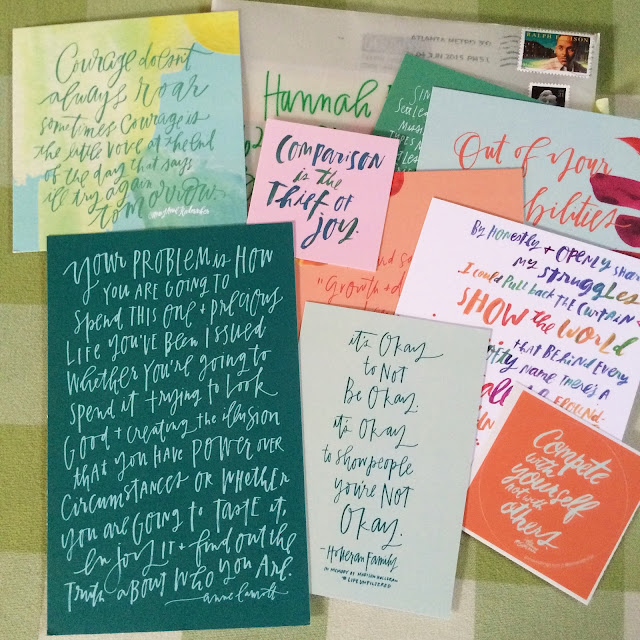 Courage doesn't
always roar
sometimes Courage is
the little voice at the end
of the day that says
i'll try again
tomorrow.
ATLANTA METRO 300
04 JUN 2015 PM 5 L
RALPH ELLISON
Hannah
Comparison
is the
Thief of
Joy.
Out of your
bilities
"Growth + d
By Honestly + Openly shar
my struggles
I could pull back the curtain
SHOW the world
that BEHIND EVERY
name there's A
Your PROBLEM is HOW
YOU ARE GOING TO
Spend THIS ONE + PRECIOUS
LIFE YOU'VE BEEN ISSUED
Whether You're going to
Spend it trying to Look
Good + creating the illusion
that YOU HAVE POWER OVER
CIRCUMSTANCES OR WHETHER
you are GOING to TASTE iT,
enjoy iT + find out the
Truth ABOUT WHO YOU ARE.
anne lamott
it's Okay
to Not
Be Okay.
it's Okay
to show people
you're Not
Okay.
- Holleran Family
IN MEMORY OF MADISON HOLLERAN
#LIFEUNFILTERED
Compete
with
yourself
not with
others.